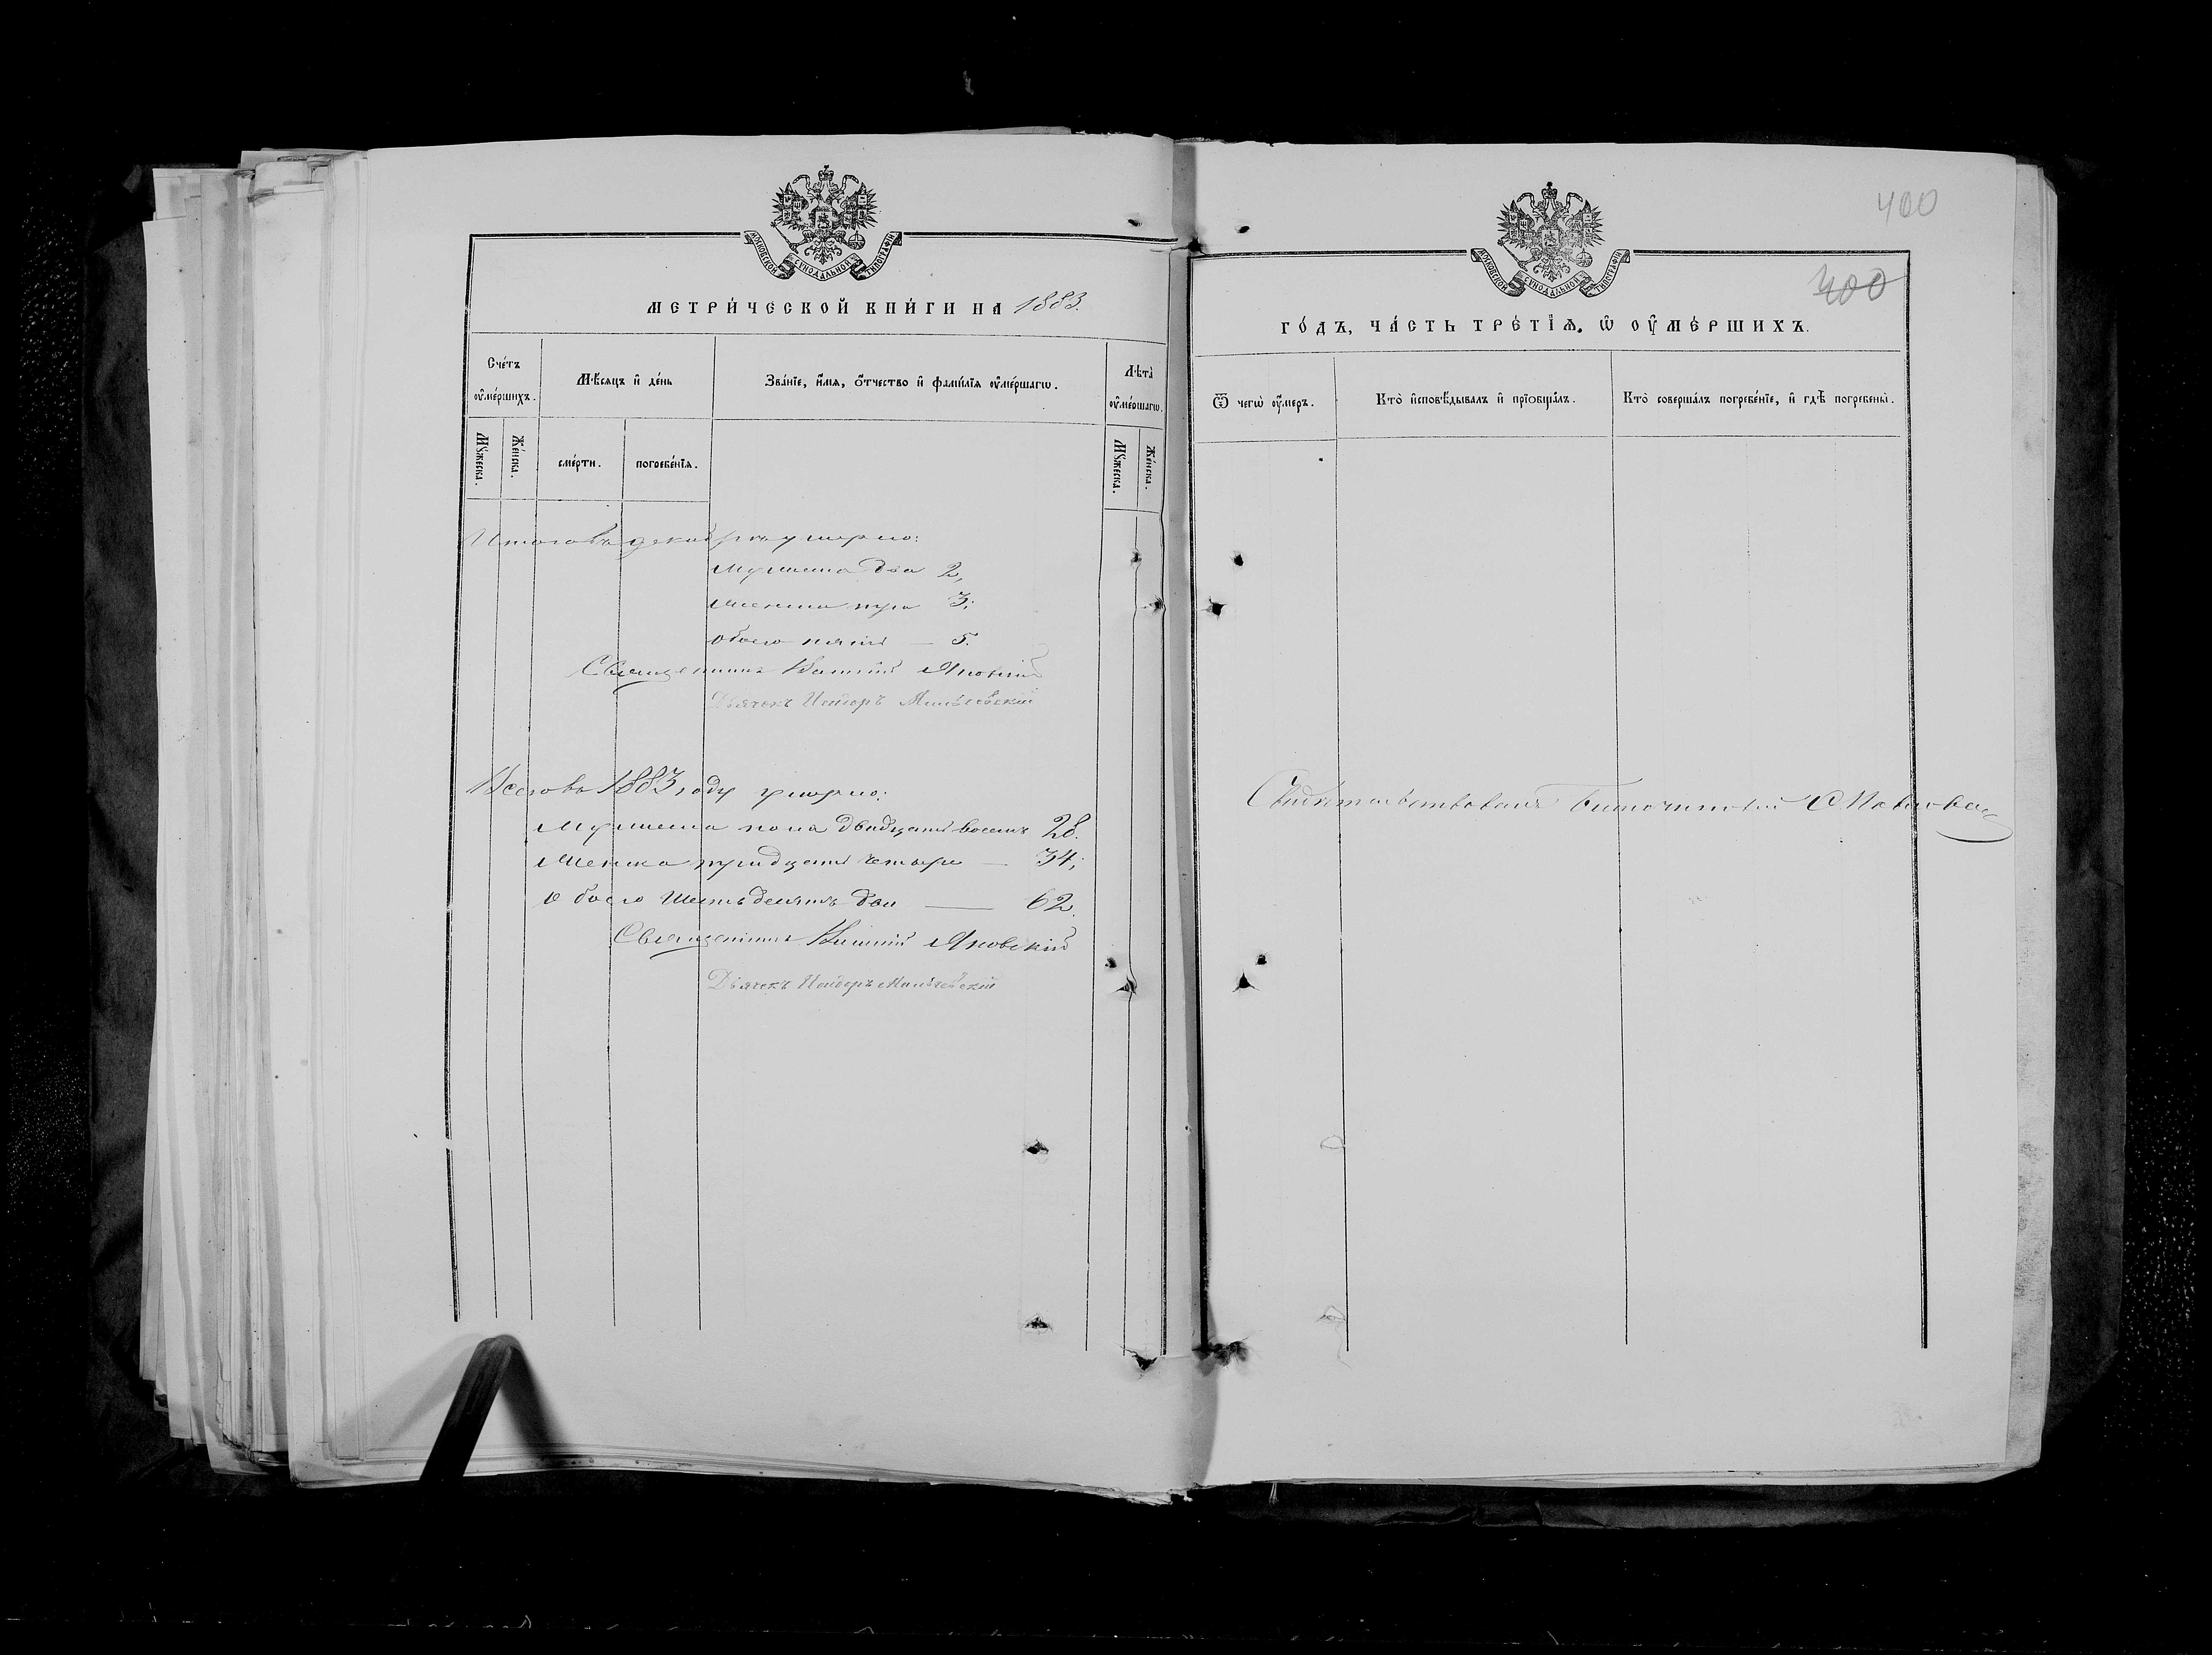 МОСКОВСКОЙ СѴНОДАЛЬНОЙ ТИПОГРАФІИ
МЕТРИ́ЧЕСКОЙ КНИ́ГИ НА 1883.
Сче́тъ оу҆ме́ршихъ.
Мѣ́сяцъ и҆ де́нь
Зва́нїе, и҆́мѧ, ѻ҆́тчество и҆ фами́лїѧ оу҆ме́ршагѡ.
Лѣ́та оу҆ме́ршагѡ.
Мꙋ́жеска.
Же́нска.
сме́рти.
погребе́нїѧ.
Мꙋ́жеска.
Же́нска.
Итого въ декабрѣ умерло:
мужеска два 2,
женска три 3;
обоего пять — 5.
Священникъ Яновскій
Дьячекъ Исидоръ
Всего въ 1883 году умерло:
Мужеска пола двадцать восемь 28.
Женска тридцать четыре — 34;
обоего шестьдесятъ два — 62.
Священникъ Яновскій
Дьячекъ Исидоръ
400
МОСКОВСКОЙ СѴНОДАЛЬНОЙ ТИПОГРАФІИ
400
ГО́ДЪ, ЧА́СТЬ ТРЕ́ТЇѦ, Ѡ҆ ОУ҆МЕ́РШИХЪ.
Ѿ чегѡ̀ оу҆́меръ.
Кто̀ и҆сповѣ́дывалъ и҆ прїѻбща́лъ.
Кто̀ соверша́лъ погребе́нїе, и҆ гдѣ̀ погребены̀.
Свидѣтельствовалъ Благочинный